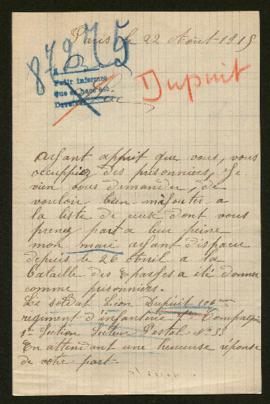 Paris le 22 Août 1915
87275
Dupuit
Ayant apprit que vous, vous
occuppiez des prisonniers, Je
vien vous demander, de
vouloir bien m'ajouter a
la liste de ceux dont vous
prenez part a leur peine
mon mari ayant disparu
depuis le 26 Avril a la
bataille des Eparges a été donner
comme prisonniers.
Le soldat Léon Dupuit 106me
regiment d'infanterie Compagnie
Section Secteur Postal No
En attendant une heureuse réponse
de votre part